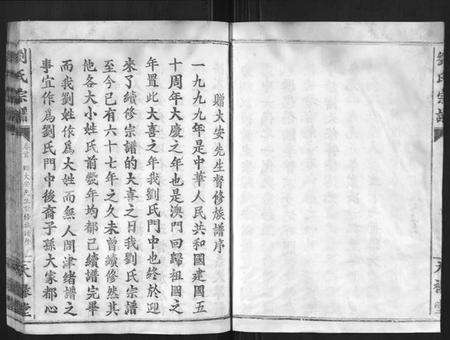 贈大安先生督修族譜序
一九九九年是中華人民共和國建國五
十周年大慶之年也是澳門回歸祖國之
年置此大喜之年我劉氏門中也終於迎
來了續修宗譜的大喜之日我劉氏宗譜
至今已有六十七年之久未曾續修然其
他各大小姓氏前幾年均都已續譜完畢
而我劉姓係為大姓而無人問津緒譜之
事宜作為劉氏門中後裔子孫大家都心
劉氏宗譜